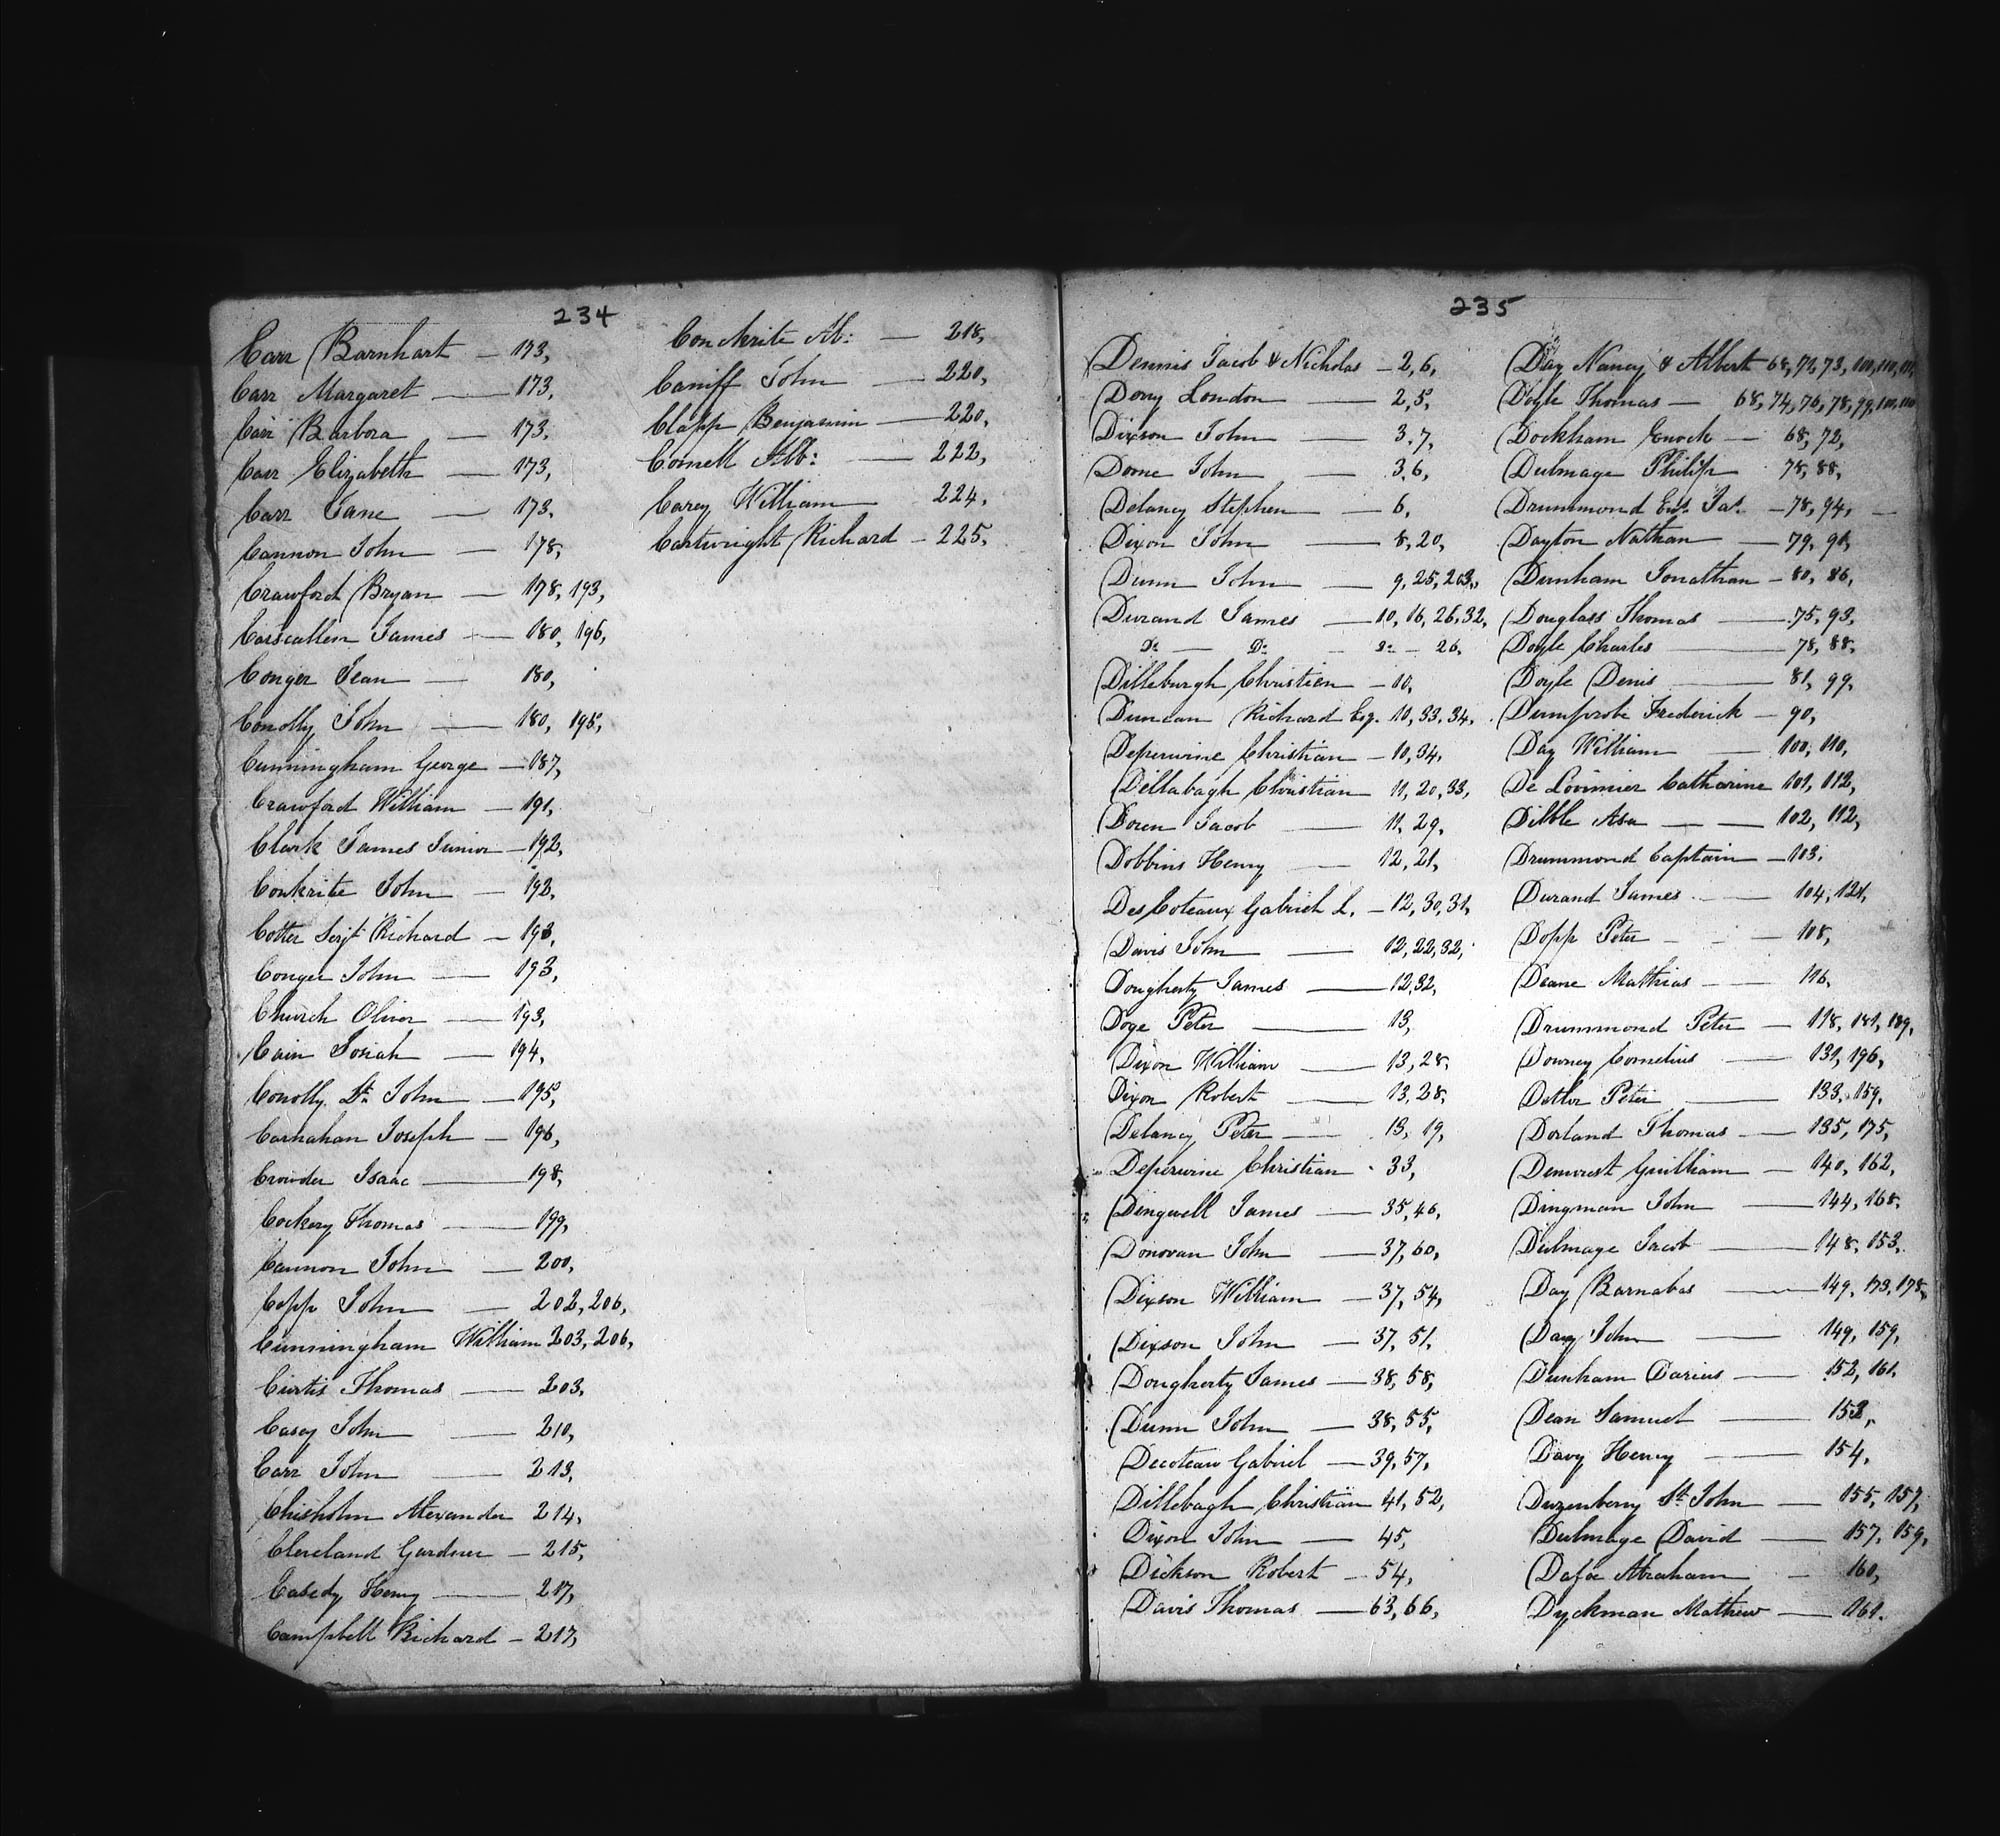 234
Carr Barnhart — 173,
Carr Margaret — 173,
Carr Barbora — 173,
Carr Elizabeth — 173,
Carr Jane — 173,
Cannon John — 178,
Crawford Bryan — 178, 193,
Carscallen James — 180, 196,
Conger Jean — 180,
Conolly John — 180, 195,
Cunningham George — 187,
Crawford William — 191,
Clark James Junior — 192,
Conkrite John — 192,
Cotter Serjt Richard — 193,
Conger John — 193,
Church Oliver — 193,
Cain Josiah — 194,
Conolly St John — 195,
Carnahan Joseph — 196,
Crowder Isaac — 198,
Cockery Thomas — 199,
Cannon John — 200,
Copp John — 202, 206,
Cunningham William 203, 206,
Curtis Thomas — 203,
Casey John — 210,
Carr John — 213,
Chisholm Alexander 214,
Cleveland Gardner — 215,
Casedy Henry — 217,
Campbell Richard — 217,
Conckrite Ab: — 218,
Caniff John — 220,
Clapp Benjamin — 220,
Cornell Alb: — 222,
Carey William — 224,
Cartwright Richard — 225,
235
Dennis Jacob & Nicholas — 2, 6,
Dorry London — 2, 5,
Dixson John — 3, 7,
Dorne John — 3, 6,
Delancy Stephen — 6,
Dixon John — 8, 20,
Dunn John — 9, 25, 203,
Durand James — 10, 16, 26, 32,
Do — Do — Do — 26,
Dilleburgh Christien — 10,
Duncan Richard Esq. 10, 33, 34,
Deperwine Christian — 10, 34,
Dillabagh Christian 11, 20, 33,
Doren Jacob — 11, 29,
Dobbins Henry — 12, 21,
Des Coteaux Gabriel L. — 12, 30, 31,
Davis John — 12, 22, 32,
Dougherty James — 12, 32,
Doge Peter — 13,
Dixon William — 13, 28,
Dixon Robert — 13, 28,
Delancy Peter — 13, 19,
Deperwine Christian - 33,
Dingwell James — 35, 46,
Donovan John — 37, 60,
Dixson William — 37, 54,
Dixson John — 37, 51,
Dougherty James — 38, 58,
Dunn John — 38, 55,
Decoteau Gabriel — 39, 57,
Dillebagh Christian 41, 52,
Dixon John — 45,
Dickson Robert — 54,
Davis Thomas — 63, 66,
Day Nancy & Albert 68, 72, 73, 100, 110, 111,
Doyle Thomas — 68, 74, 76, 78, 99, 100, 110
Dockham Enock — 68, 72,
Dulmage Philip 78, 88,
Drummond Jas. — 78, 94, —
Dayton Nathan — 79, 91,
Dunham Jonathan — 80, 86,
Douglass Thomas — 75, 93,
Doyle Charles — 78, 88,
Doyle Denis — 81, 99,
Dumprobe Frederick — 90,
Day William — 100, 110,
De Lovimier Catharine 101, 112,
Dibble Asa — — 102, 112,
Drummond Captain — 103,
Durand James — 104, 121,
Dopp Peter — 108,
Deane Mathias — 116,
Drummond Peter — 118, 181, 189,
Downey Cornelius — 131, 196,
Detlor Peter — 133, 159,
Dorland Thomas — 135, 175,
Demorest Guilliam — 140, 162,
Dingman John — 144, 168,
Dulmage Jacob — 148, 153,
Day Barnabas — 149, 173, 178,
Davy John — 149, 159,
Dunham Darius — 152, 161,
Dean Samuel — 153,
Davy Henry — 154,
Duzenberry St John — 155, 157,
Dulmage David — 157, 159,
Dafoe Abraham — 160,
Dyckman Mathew — 161.